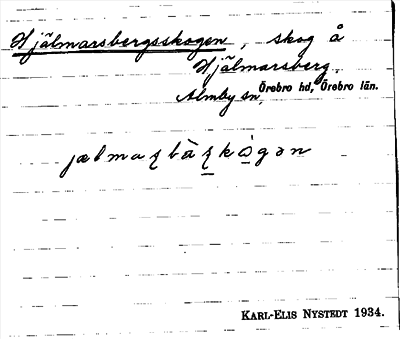 Hjälmarsbergsskogen, skog å
Hjälmarsberg,
Almby sn, Örebro hd, Örebro län.
jælmaʈbà̀ʈkò̤gən
KARL-ELIS NYSTEDT 1934.